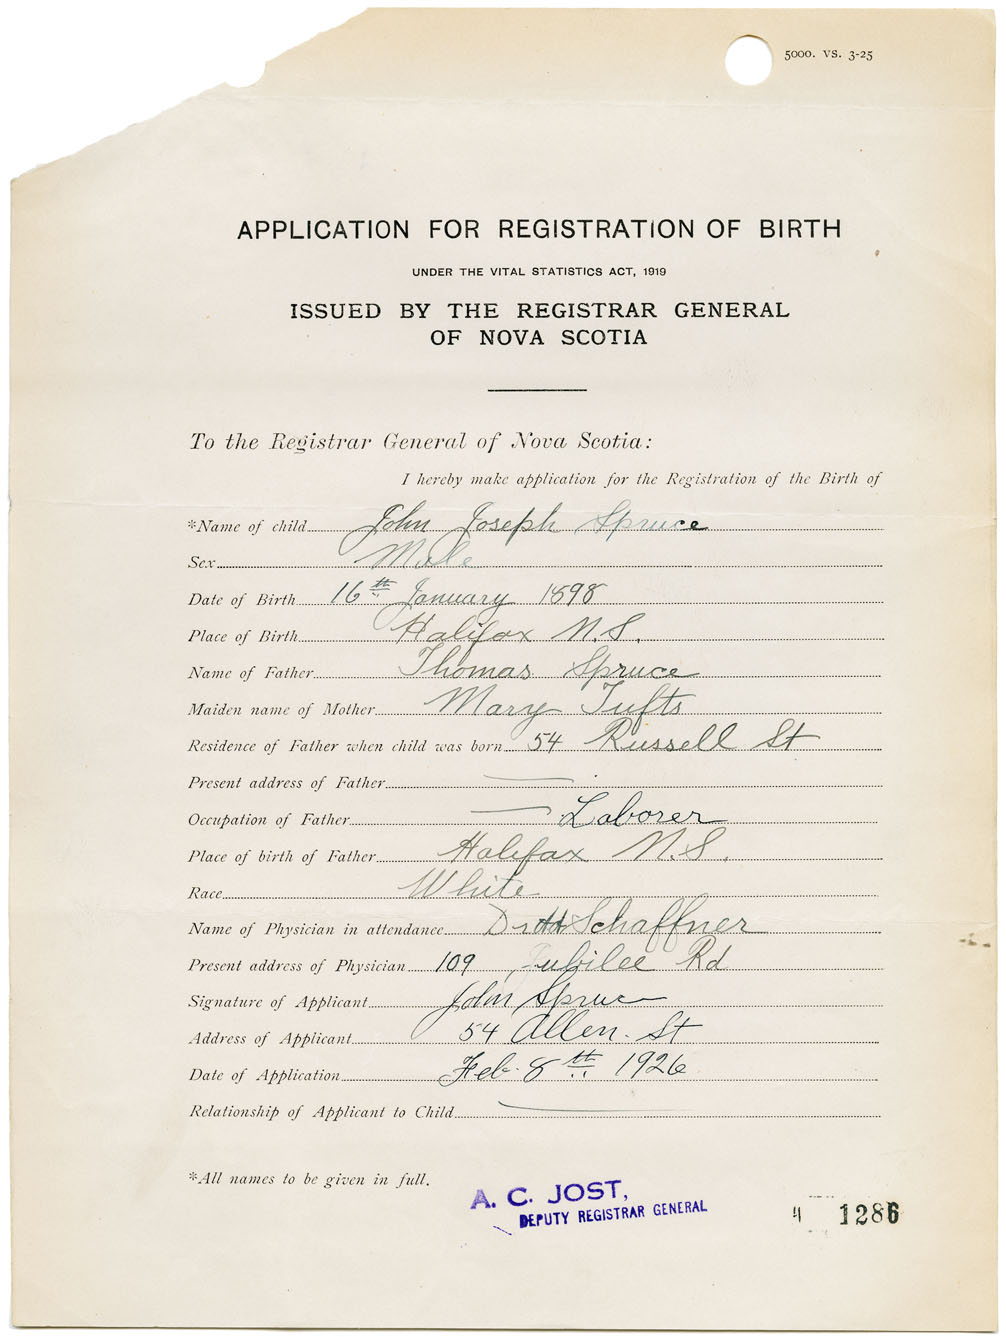 5000. VS. 3-25
APPLICATION FOR REGISTRATION OF BIRTH
UNDER THE VITAL STATISTICS ACT, 1919
ISSUED BY THE REGISTRAR GENERAL
OF NOVA SCOTIA
To the Registrar General of Nova Scotia:
I hereby make application for the Registration of the Birth of
*Name of child John Joseph Spruce
Sex Male
Date of Birth 16th January 1898
Place of Birth Halifax N.S.
Name of Father Thomas Spruce
Maiden name of Mother Mary Tufts
Residence of Father when child was born 54 Russell St
Present address of Father
Occupation of Father Laborer
Place of birth of Father Halifax N.S.
Race White
Name of Physician in attendance Dr Schaffner
Present address of Physician 109 Jubilee Rd
Signature of Applicant John Spruce
Address of Applicant 54 Allen. St
Date of Application Feb. 8th 1926
Relationship of Applicant to Child
*All names to be given in full.
A. C. JOST,
DEPUTY REGISTRAR GENERAL
1286